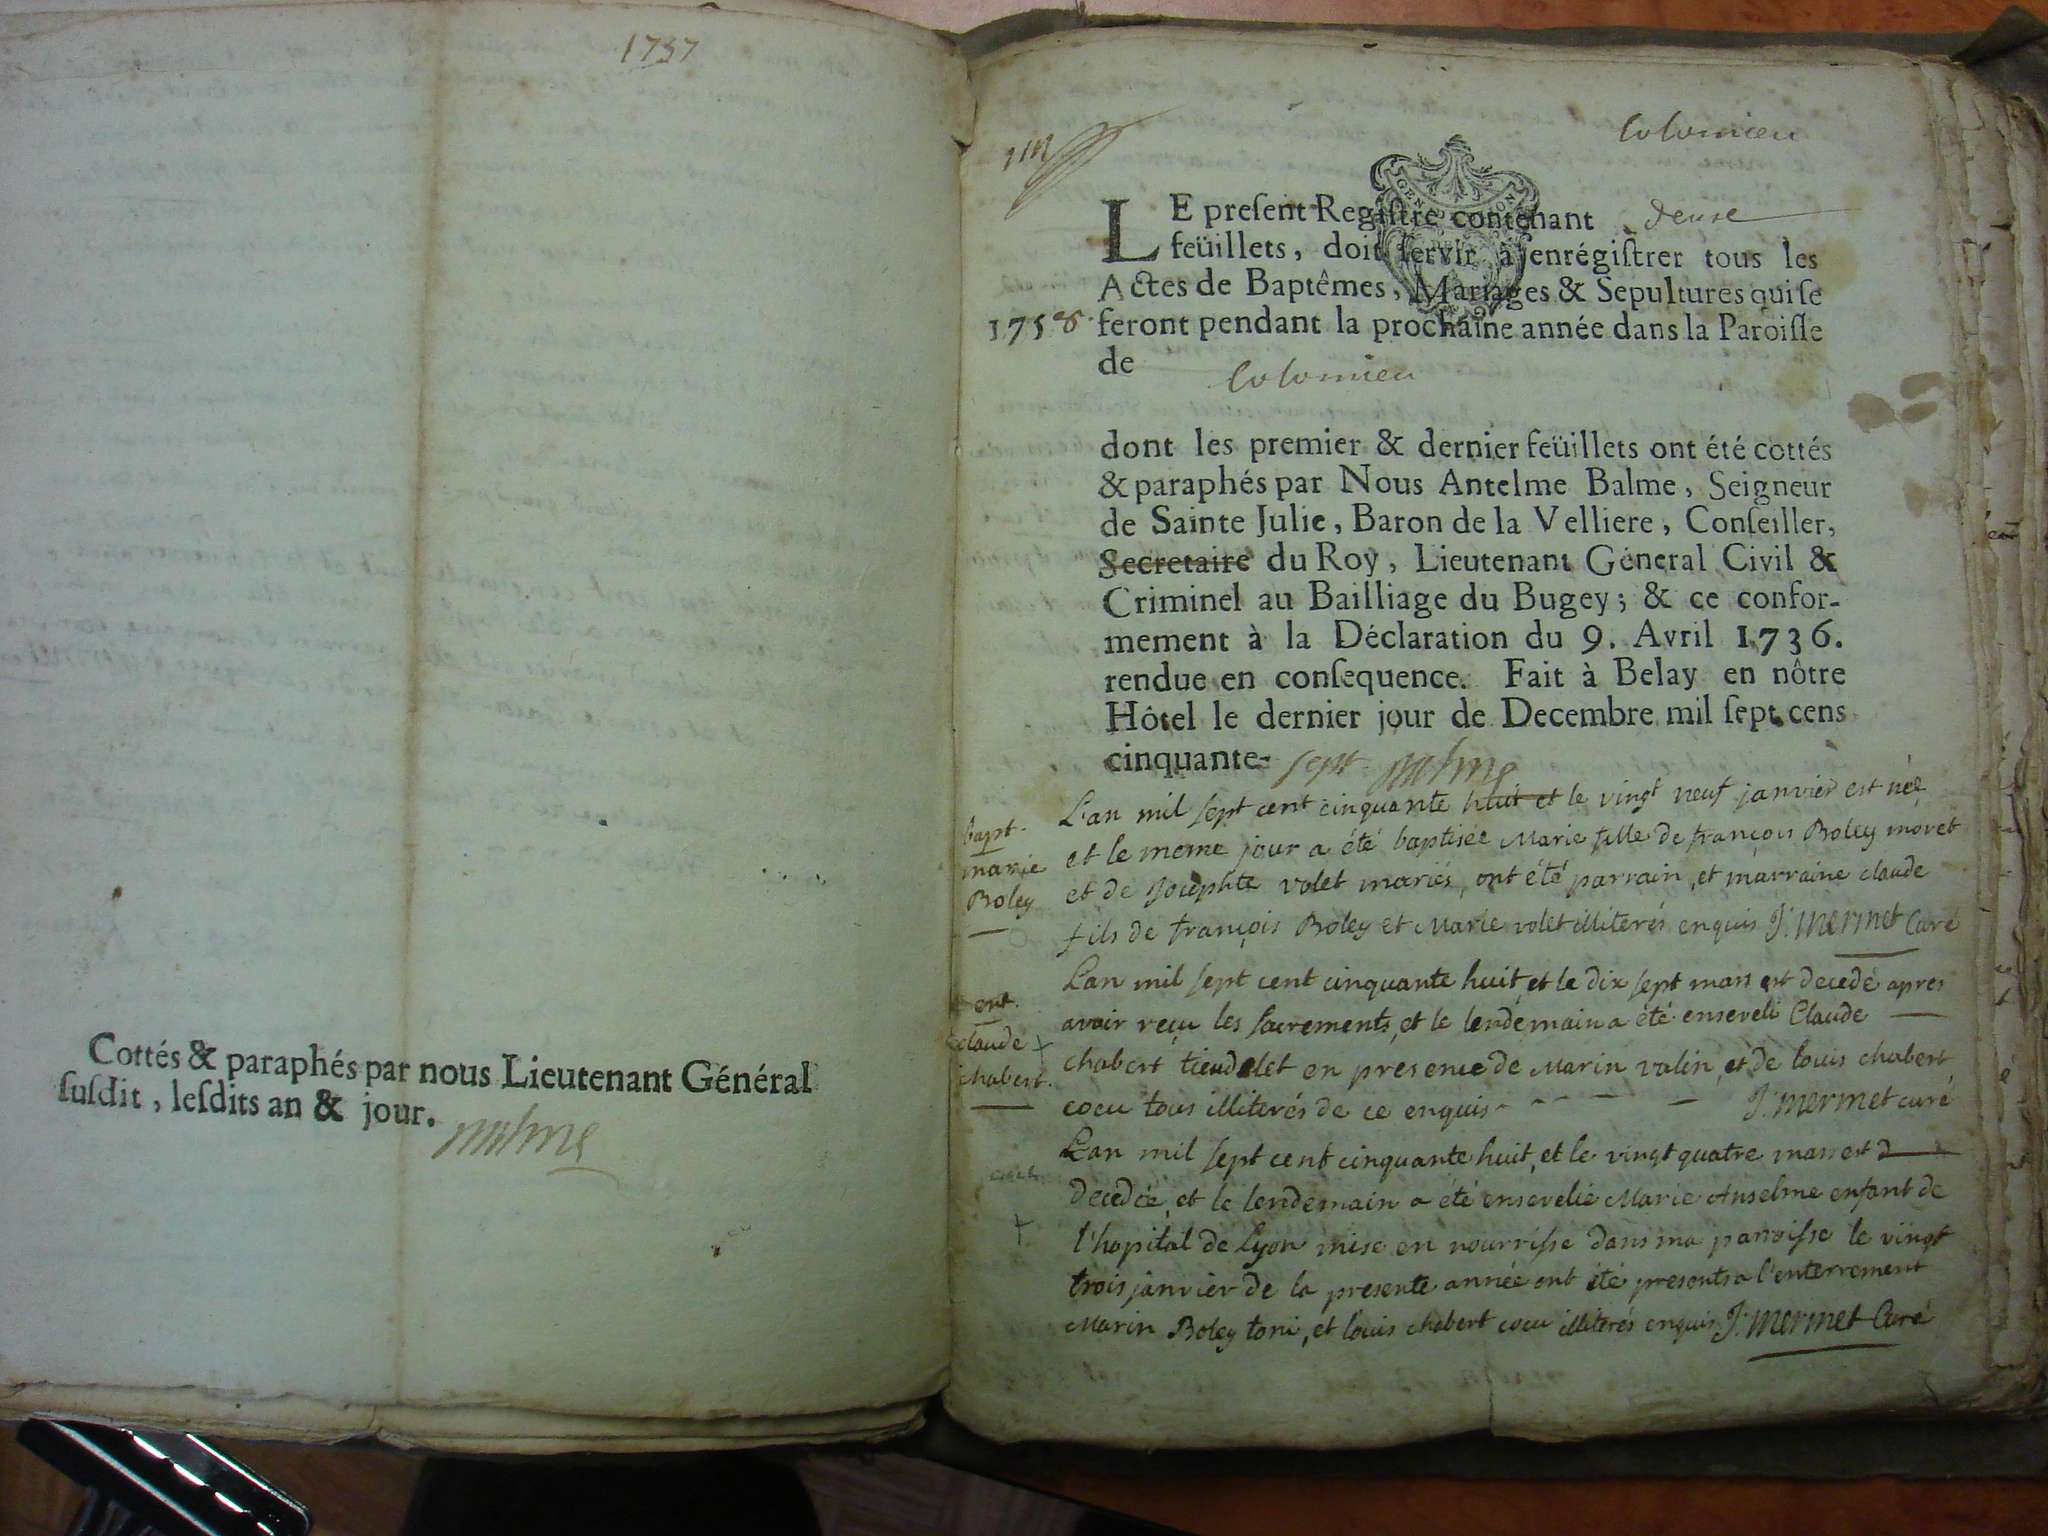 1757
Cottés & paraphés par nous Lieutenant Général
ſuſdit, leſdits an & jour.
Colomieu
LE preſent Regiſtre contenant deuse
feüillets, doit ſervir à enrégiſtrer tous les
Actes de Baptêmes, Mariages & Sepultures qui ſe
1758. feront pendant la prochaine année dans la Paroiſſe
de Colomieu
dont les premier & dernier feüillets ont été cottés
& paraphés par Nous Antelme Balme, Seigneur
de Sainte Julie, Baron de la Velliere, Conſeiller,
Secretaire du Roy, Lieutenant Géneral Civil &
Criminel au Bailliage du Bugey; & ce confor-
mement à la Déclaration du 9. Avril 1736.
rendue en conſequence. Fait à Belay en nôtre
Hôtel le dernier jour de Decembre mil ſept cens
cinquante-sept
bapt.
marie
Boley
L'an mil sept cent cinquante huit et le vingt neuf janvier est née
et le meme jour a été baptisée Marie fille de françois Boley moret
et de Josephte volet mariés, ont été parrain, et marraine claude
fils de françois Boley et Marie volet illiterés enquis J. Mermet Curé
ent.
claude
chabert.
L'an mil sept cent cinquante huit, et le dix sept mars est decedé apres
avoir reçu les sacrements, et le lendemain a été enseveli Claude
chabert tiendelet en presence de Marin valin, et de louis chabert
cocu tous illiterés de ce enquis J. Mermet curé
L'an mil sept cent cinquante huit, et le vingt quatre mars est d
decedée, et le lendemain a été ensevelie Marie Anselme enfant de
l'hopital de Lyon mise en nourrisse dans ma parroisse le vingt
trois janvier de la presente année ont été presents a l'enterrement
Marin Boley toni, et louis chabert cocu illiterés enquis J. Mermet Curé